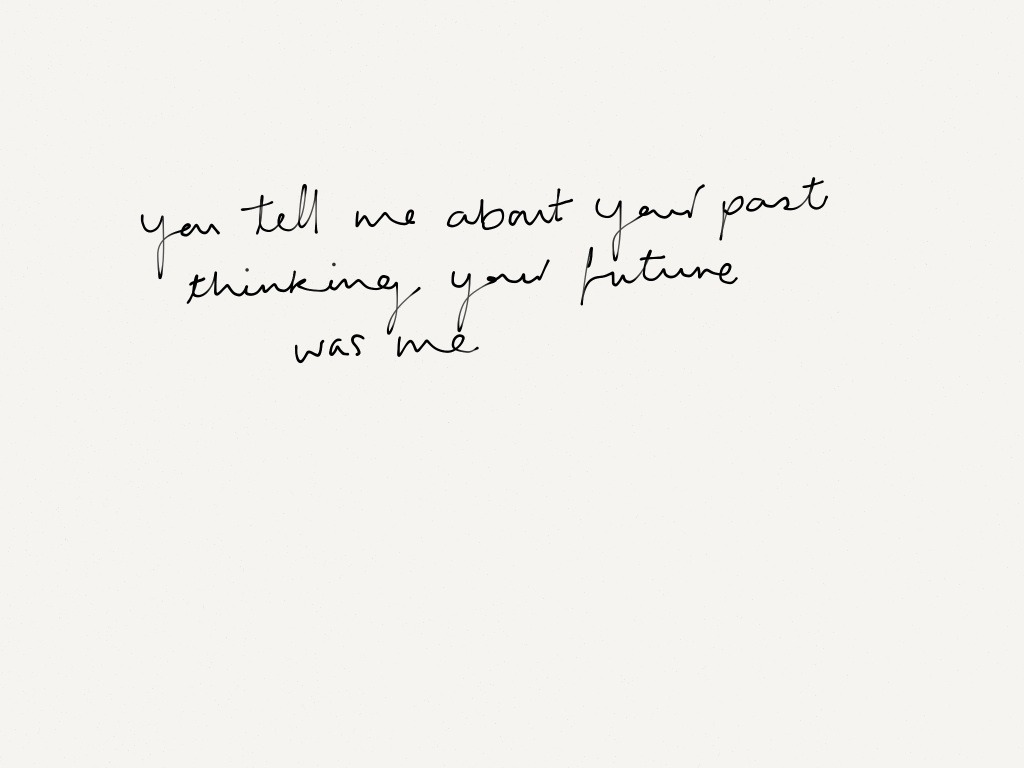 you tell me about your past
thinking your future
was me